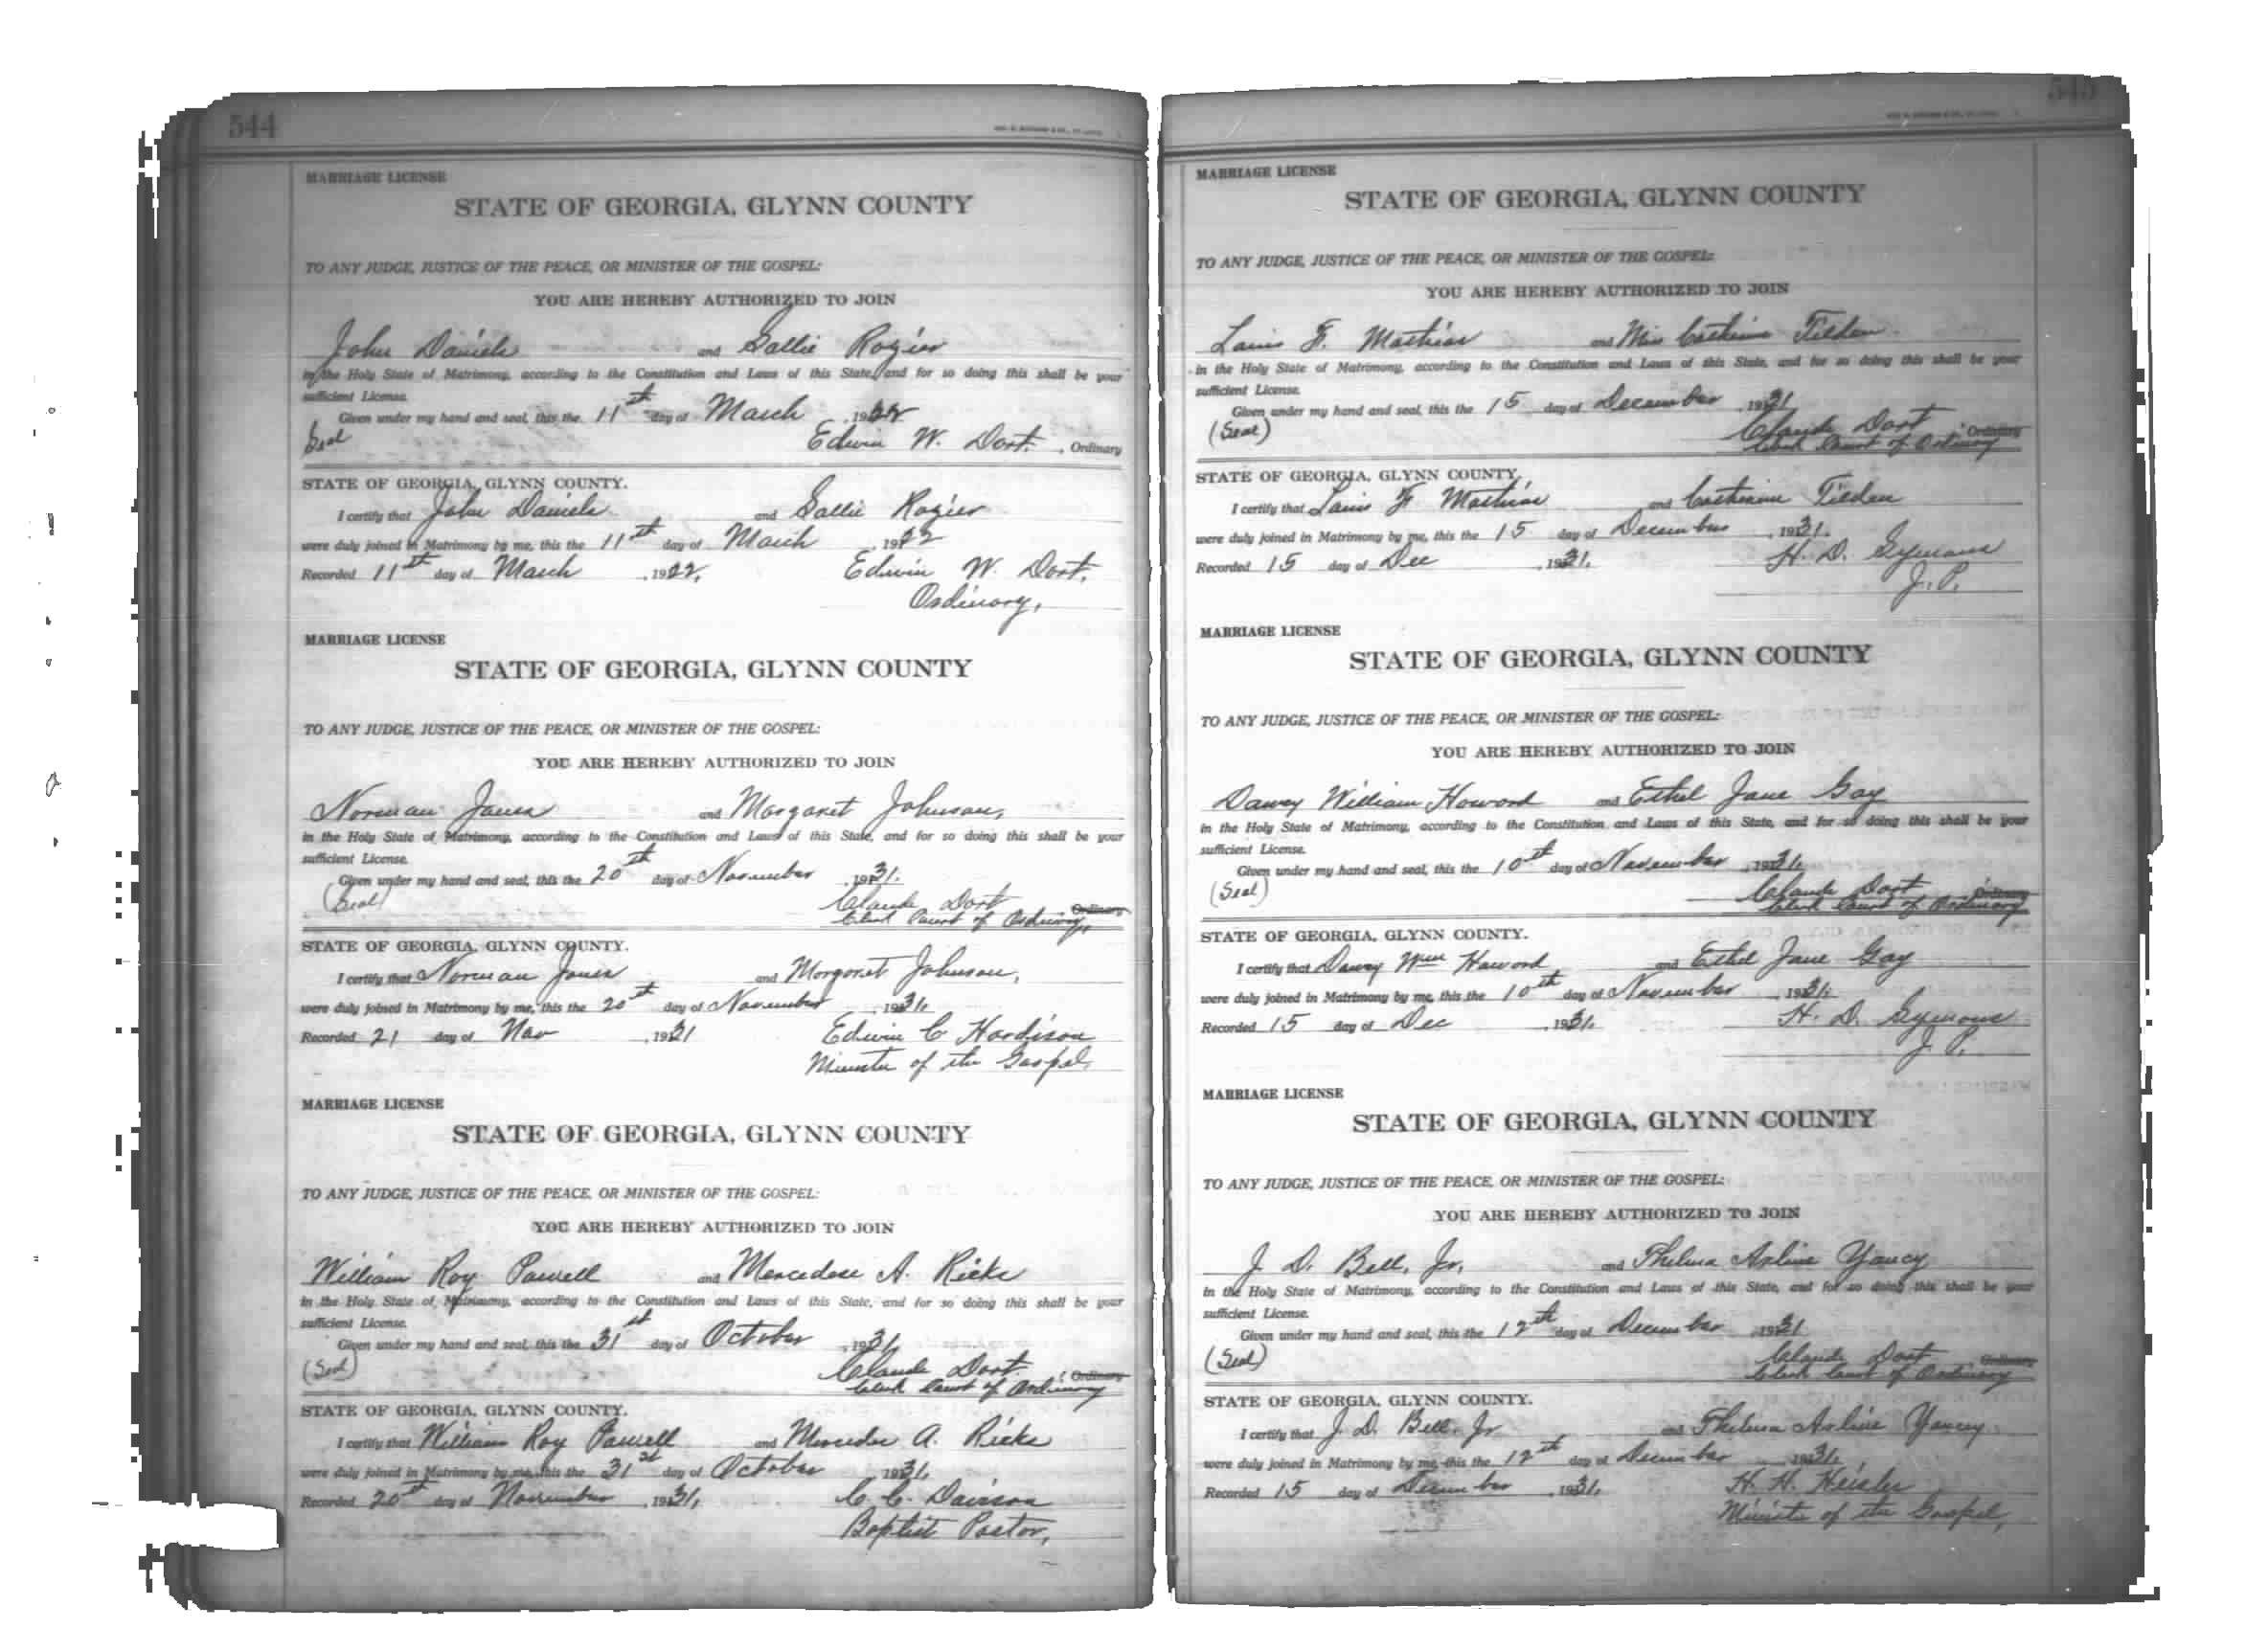 544
MARRIAGE LICENSE
STATE OF GEORGIA, GLYNN COUNTY
TO ANY JUDGE, JUSTICE OF THE PEACE, OR MINISTER OF THE GOSPEL:
YOU ARE HEREBY AUTHORIZED TO JOIN
John Daniels and Sallie Rozier
in the Holy State of Matrimony, according to the Constitution and Laws of this State, and for so doing this shall be your
sufficient License.
Given under my hand and seal, this the 11th day of March, 1922
Seal Edwin W. Dart. , Ordinary
STATE OF GEORGIA, GLYNN COUNTY.
I certify that John Daniels and Sallie Rozier
were duly joined in Matrimony by me, this the 11th day of March, 1922
Recorded 11th day of March, 1922, Edwin W. Dart,
Ordinary,
MARRIAGE LICENSE
STATE OF GEORGIA, GLYNN COUNTY
TO ANY JUDGE, JUSTICE OF THE PEACE, OR MINISTER OF THE GOSPEL:
YOU ARE HEREBY AUTHORIZED TO JOIN
Norman Jones and Margaret Johnson,
in the Holy State of Matrimony, according to the Constitution and Laws of this State, and for so doing this shall be your
sufficient License.
Given under my hand and seal, this the 20th day of November, 1931.
(Seal) Claude Dart Ordinary
Clerk Court of Ordinary,
STATE OF GEORGIA, GLYNN COUNTY.
I certify that Norman Jones and Margaret Johnson,
were duly joined in Matrimony by me, this the 20th day of November, 1931.
Recorded 21 day of Nov, 1931 Edwin C Hardison
Minister of the Gospel,
MARRIAGE LICENSE
STATE OF GEORGIA, GLYNN COUNTY
TO ANY JUDGE, JUSTICE OF THE PEACE, OR MINISTER OF THE GOSPEL:
YOU ARE HEREBY AUTHORIZED TO JOIN
William Roy Powell and Mercedese A. Ricks
in the Holy State of Matrimony, according to the Constitution and Laws of this State, and for so doing this shall be your
sufficient License.
Given under my hand and seal, this the 31st day of October, 1931,
(Seal) Claude Dart. , Ordinary
Clerk Court of Ordinary
STATE OF GEORGIA, GLYNN COUNTY.
I certify that William Roy Powell and Mercedes A. Ricks
were duly joined in Matrimony by me, this the 31st day of October 1931,
Recorded 20th day of November, 1931, C. C. Davison
Baptist Pastor,
545
MARRIAGE LICENSE
STATE OF GEORGIA, GLYNN COUNTY
TO ANY JUDGE, JUSTICE OF THE PEACE, OR MINISTER OF THE GOSPEL:
YOU ARE HEREBY AUTHORIZED TO JOIN
Louis F. Mathias and Miss Catherine Tilden
in the Holy State of Matrimony, according to the Constitution and Laws of this State, and for so doing this shall be your
sufficient License.
Given under my hand and seal, this the 15 day of December, 1931
(Seal) Claude Dart , Ordinary
Clerk Court of Ordinary
STATE OF GEORGIA, GLYNN COUNTY,
I certify that Louis F Mathias and Catherine Tilden
were duly joined in Matrimony by me, this the 15 day of December, 1931.
Recorded 15 day of Dec, 1931. H. D. Symons
J. P.
MARRIAGE LICENSE
STATE OF GEORGIA, GLYNN COUNTY
TO ANY JUDGE, JUSTICE OF THE PEACE, OR MINISTER OF THE GOSPEL:
YOU ARE HEREBY AUTHORIZED TO JOIN
Dawey William Howard and Ethel Jane Gay
in the Holy State of Matrimony, according to the Constitution and Laws of this State, and for so doing this shall be your
sufficient License.
Given under my hand and seal, this the 10th day of November, 1931.
(Seal) Claude Dart , Ordinary
Clerk Court of Ordinary
STATE OF GEORGIA, GLYNN COUNTY.
I certify that Dawey Wm Howard and Ethel Jane Gay
were duly joined in Matrimony by me, this the 10th day of November, 1931.
Recorded 15 day of Dec, 1931. H. D. Symons
J. P.
MARRIAGE LICENSE
STATE OF GEORGIA, GLYNN COUNTY
TO ANY JUDGE, JUSTICE OF THE PEACE, OR MINISTER OF THE GOSPEL:
YOU ARE HEREBY AUTHORIZED TO JOIN
J. D. Bell, Jr. and Thelma Arline Yancy
in the Holy State of Matrimony, according to the Constitution and Laws of this State, and for so doing this shall be your
sufficient License.
Given under my hand and seal, this the 12th day of December, 1931
(Seal) Claude Dart , Ordinary
Clerk Court of Ordinary
STATE OF GEORGIA, GLYNN COUNTY.
I certify that J. D. Bell, Jr and Thelma Arline Yancey
were duly joined in Matrimony by me, this the 12th day of December, 1931,
Recorded 15 day of December, 1931, H. H. Heisler
Minister of the Gospel,